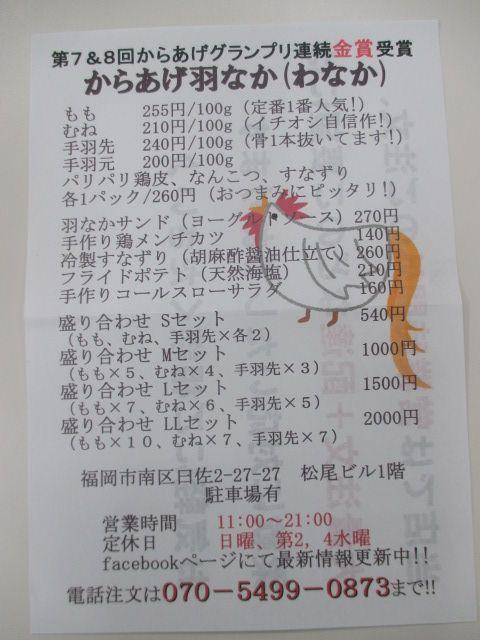 第7&8回からあげグランプリ連続金賞受賞
からあげ羽なか(わなか)
もも 255円/100g (定番1番人気!)
むね 210円/100g (イチオシ自信作!)
手羽先 240円/100g (骨1本抜いてます!)
手羽元 200円/100g
パリパリ鶏皮、なんこつ、すなずり
各1パック/260円 (おつまみにピッタリ!)
羽なかサンド (ヨーグルトソース) 270円
手作り鶏メンチカツ 140円
冷製すなずり (胡麻酢醤油仕立て) 260円
フライドポテト (天然海塩) 210円
手作りコールスローサラダ 160円
盛り合わせ Sセット 540円
(もも、むね、手羽先×各2)
盛り合わせ Mセット 1000円
(もも×5、むね×4、手羽先×3)
盛り合わせ Lセット 1500円
(もも×7、むね×6、手羽先×5)
盛り合わせ LLセット 2000円
(もも×10、むね×7、手羽先×7)
福岡市南区曰佐2-27-27 松尾ビル1階
駐車場有
営業時間 11:00~21:00
定休日 日曜、第2, 4水曜
facebookページにて最新情報更新中!!
電話注文は070-5499-0873まで!!